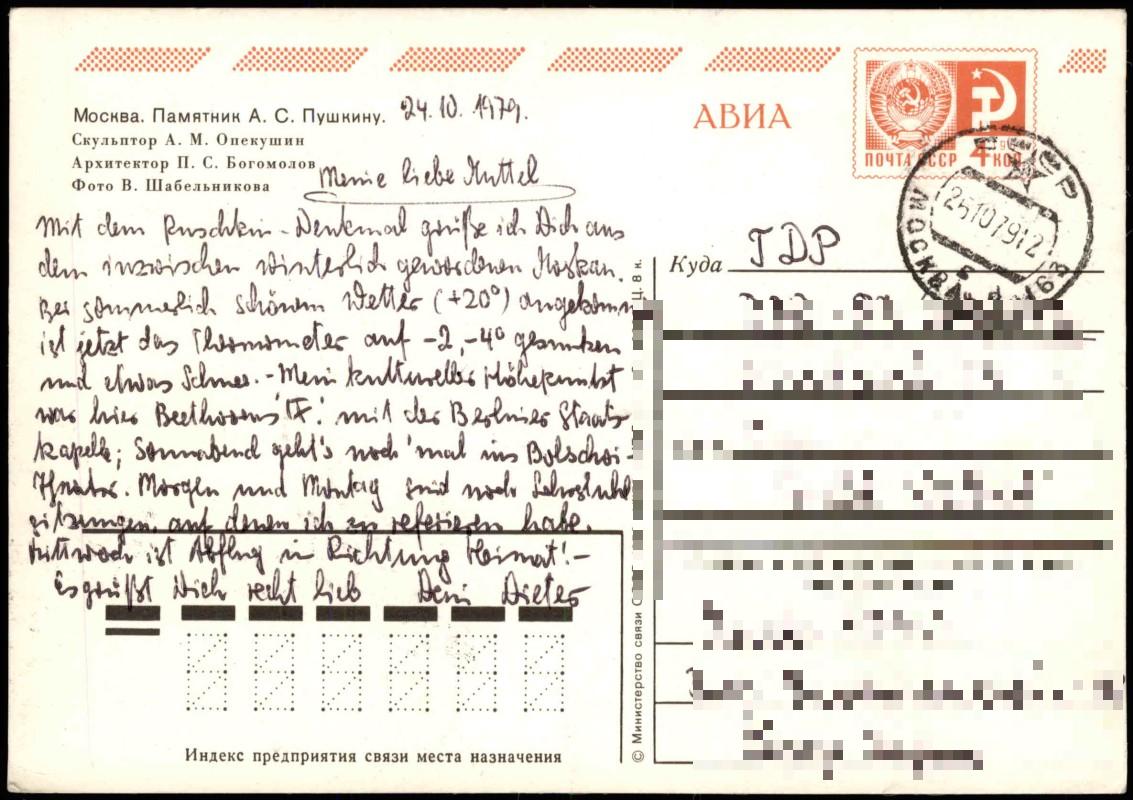 Москва. Памятник А. С. Пушкину. 24.10.1979.
Скульптор А. М. Опекушин
Архитектор П. С. Богомолов
Фото В. Шабельникова
АВИА
ПОЧТА СССР 4 КОП
СССР
25107912
МОСКВА
Meine liebe Muttel
Mit dem Puschkin-Denkmal grüße ich Dich aus
dem inzwischen winterlich gewordenen Moskau.
Bei sommerlich schönem Wetter (+20°) angekomm
ist jetzt das Thermometer auf -2, -4° gesunken
und etwas Schnee. - Mein kultureller Höhepunkt
war hier Beethovens 'IX.' mit der Berliner Staats
kapelle; Sonnabend geht's noch 'mal ins Bolschoi-
Theater. Morgen und Montag sind noch Lehrstuhl
sitzungen, auf denen ich zu referieren habe.
Mittwoch ist Abflug in Richtung Heimat! -
Es grüßt Dich recht lieb Dein Dieter
Куда ГДР
Индекс предприятия связи места назначения
© Министерство связи С
Ц. 8 к.